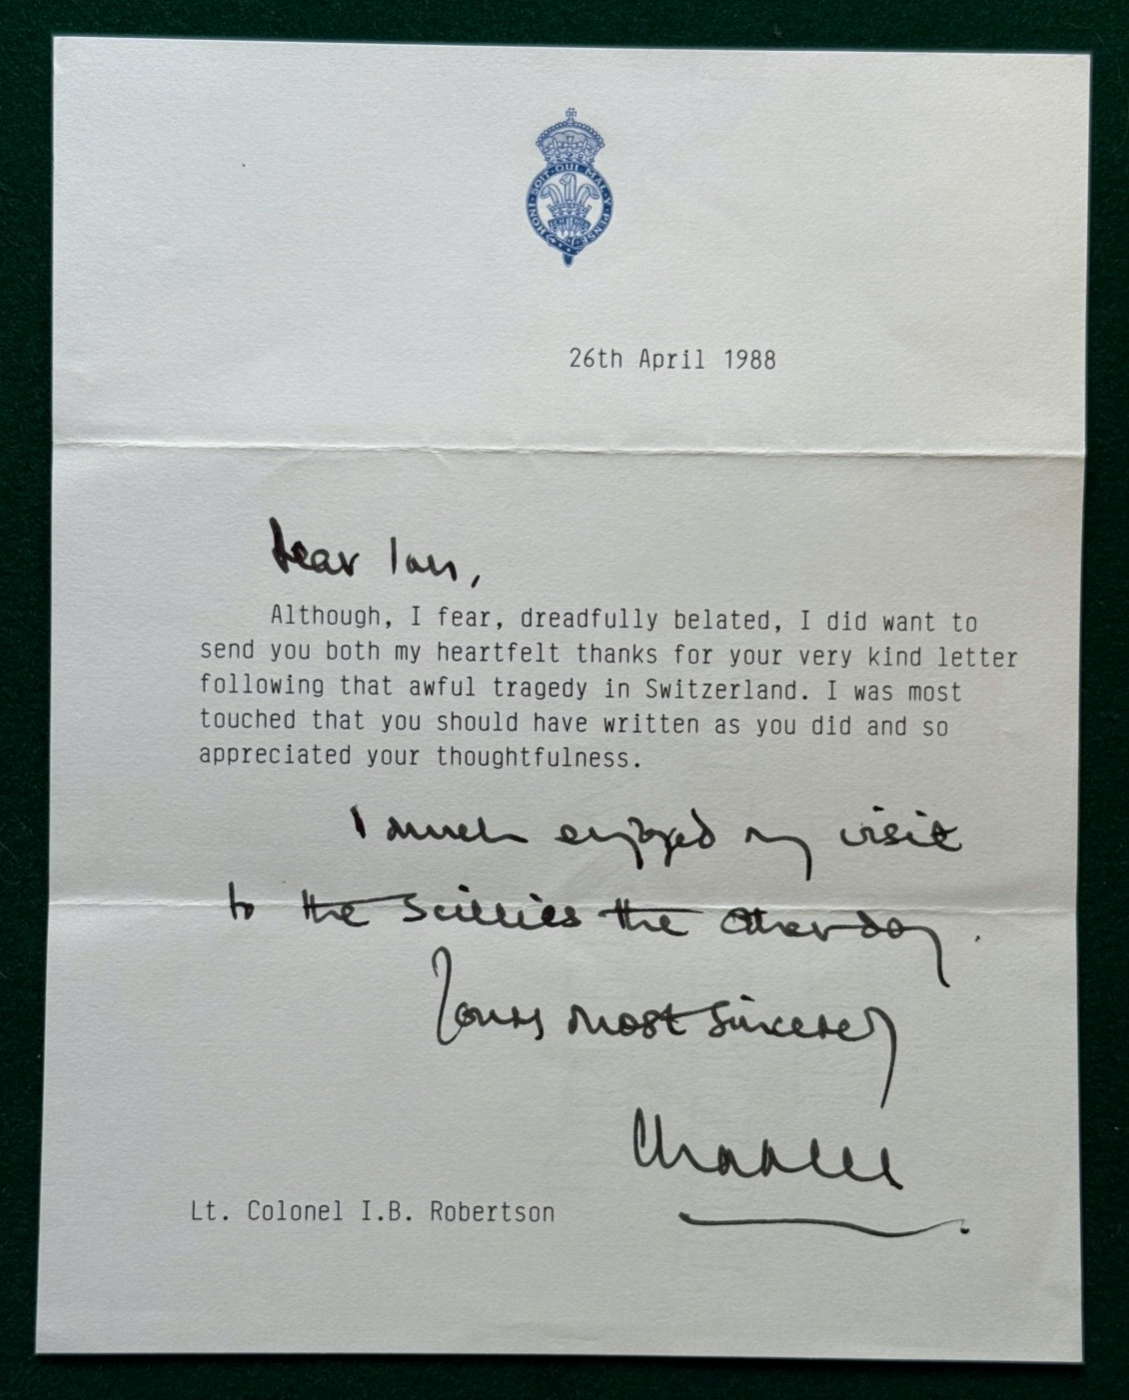 HONI · SOIT · QUI · MAL · Y · PENSE
26th April 1988
Dear Ian,
Although, I fear, dreadfully belated, I did want to
send you both my heartfelt thanks for your very kind letter
following that awful tragedy in Switzerland. I was most
touched that you should have written as you did and so
appreciated your thoughtfulness.
I much enjoyed my visit
to the Scillies the other day.
Yours most sincerely
Charles
Lt. Colonel I.B. Robertson